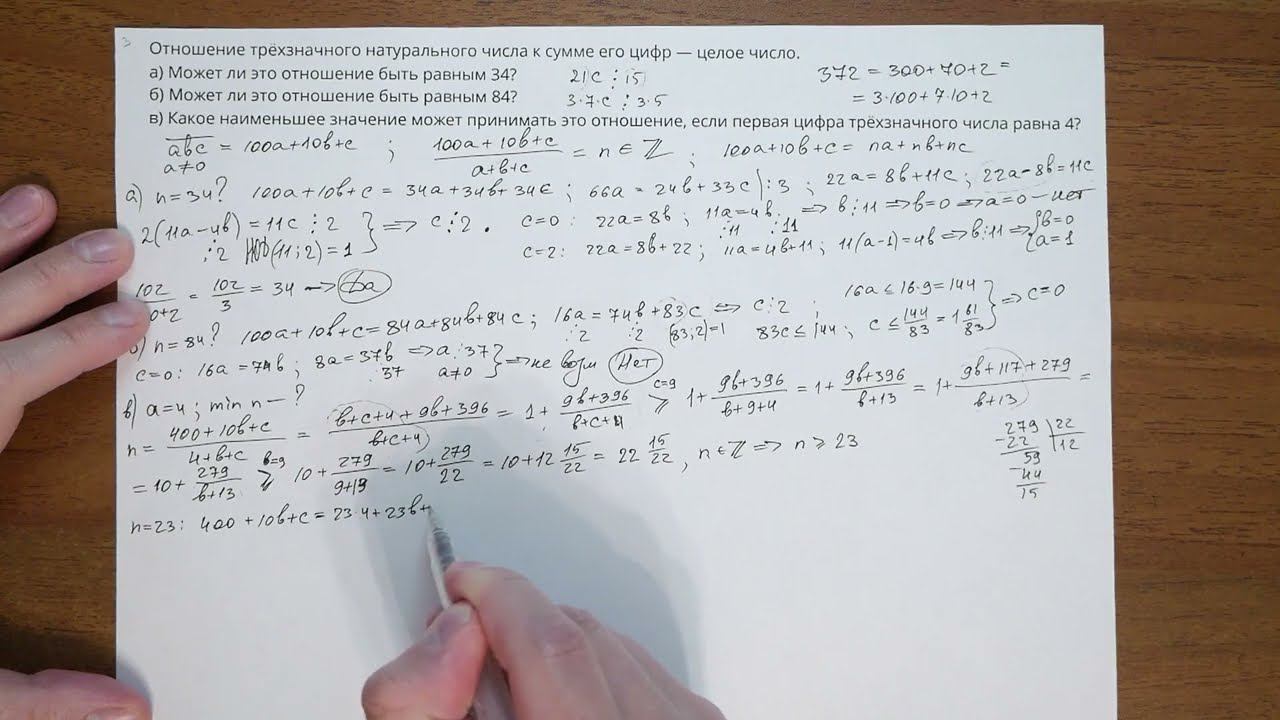 3
Отношение трёхзначного натурального числа к сумме его цифр — целое число.
а) Может ли это отношение быть равным 34? 21c ⋮ 15 372 = 300+70+2 =
б) Может ли это отношение быть равным 84? 3·7·c ⋮ 3·5 = 3·100+7·10+2
в) Какое наименьшее значение может принимать это отношение, если первая цифра трёхзначного числа равна 4?
abc = 100a+10b+c ; (100a+10b+c)/(a+b+c) = n ∈ ℤ ; 100a+10b+c = na+nb+nc
a≠0
а) n=34? 100a+10b+c = 34a+34b+34c ; 66a = 24b+33c | :3 ; 22a = 8b+11c ; 22a-8b=11c
2(11a-4b) = 11c ⋮ 2 } => c ⋮ 2 . c=0 : 22a=8b ; 11a=4b ; => b ⋮ 11 => b=0 => a=0 – нет
⋮ 2 НОД(11;2)=1 ⋮11 ⋮11
c=2: 22a=8b+22 ; 11a=4b+11 ; 11(a-1)=4b => b ⋮ 11 => { b=0 a=1
102/0+2 = 102/3 = 34 —> Да
б) n=84? 100a+10b+c=84a+84b+84c ; 16a = 74b+83c => c ⋮ 2 ; 16a ≤ 16·9=144 } => c=0
⋮2 ⋮2 (83;2)=1 83c ≤ 144 ; c ≤ 144/83 = 1 61/83
c=0: 16a=74b ; 8a=37b => a ⋮ 37 } => не возм Нет
⋮ 37 a≠0
в) a=4 ; min n — ?
n = (400+10b+c)/(4+b+c) = (b+c+4+9b+396)/(b+c+4) = 1+ (9b+396)/(b+c+4) ≥ c=9 1+ (9b+396)/(b+9+4) = 1+ (9b+396)/(b+13) = 1+ (9b+117+279)/(b+13) =
= 10+ 279/(b+13) ≥ b=9 10+ 279/(9+13) = 10+ 279/22 = 10+12 15/22 = 22 15/22 , n∈ℤ => n ≥ 23
279 | 22
-22 | 12
59
-44
15
n=23: 400+10b+c = 23·4+23b+